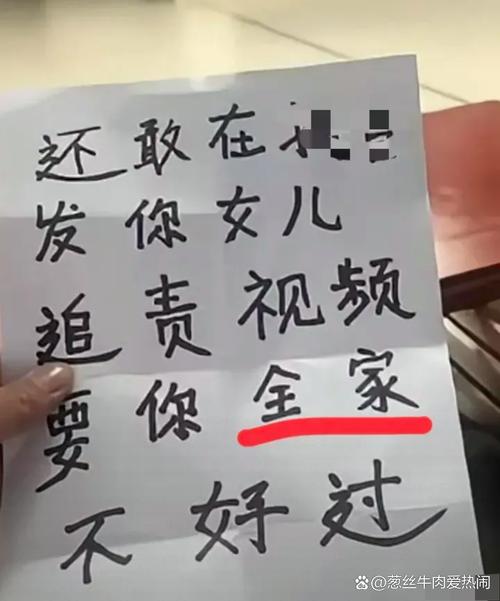 还敢在
发你女儿
追责视频
要你全家
不好过
@葱丝牛肉爱热闹